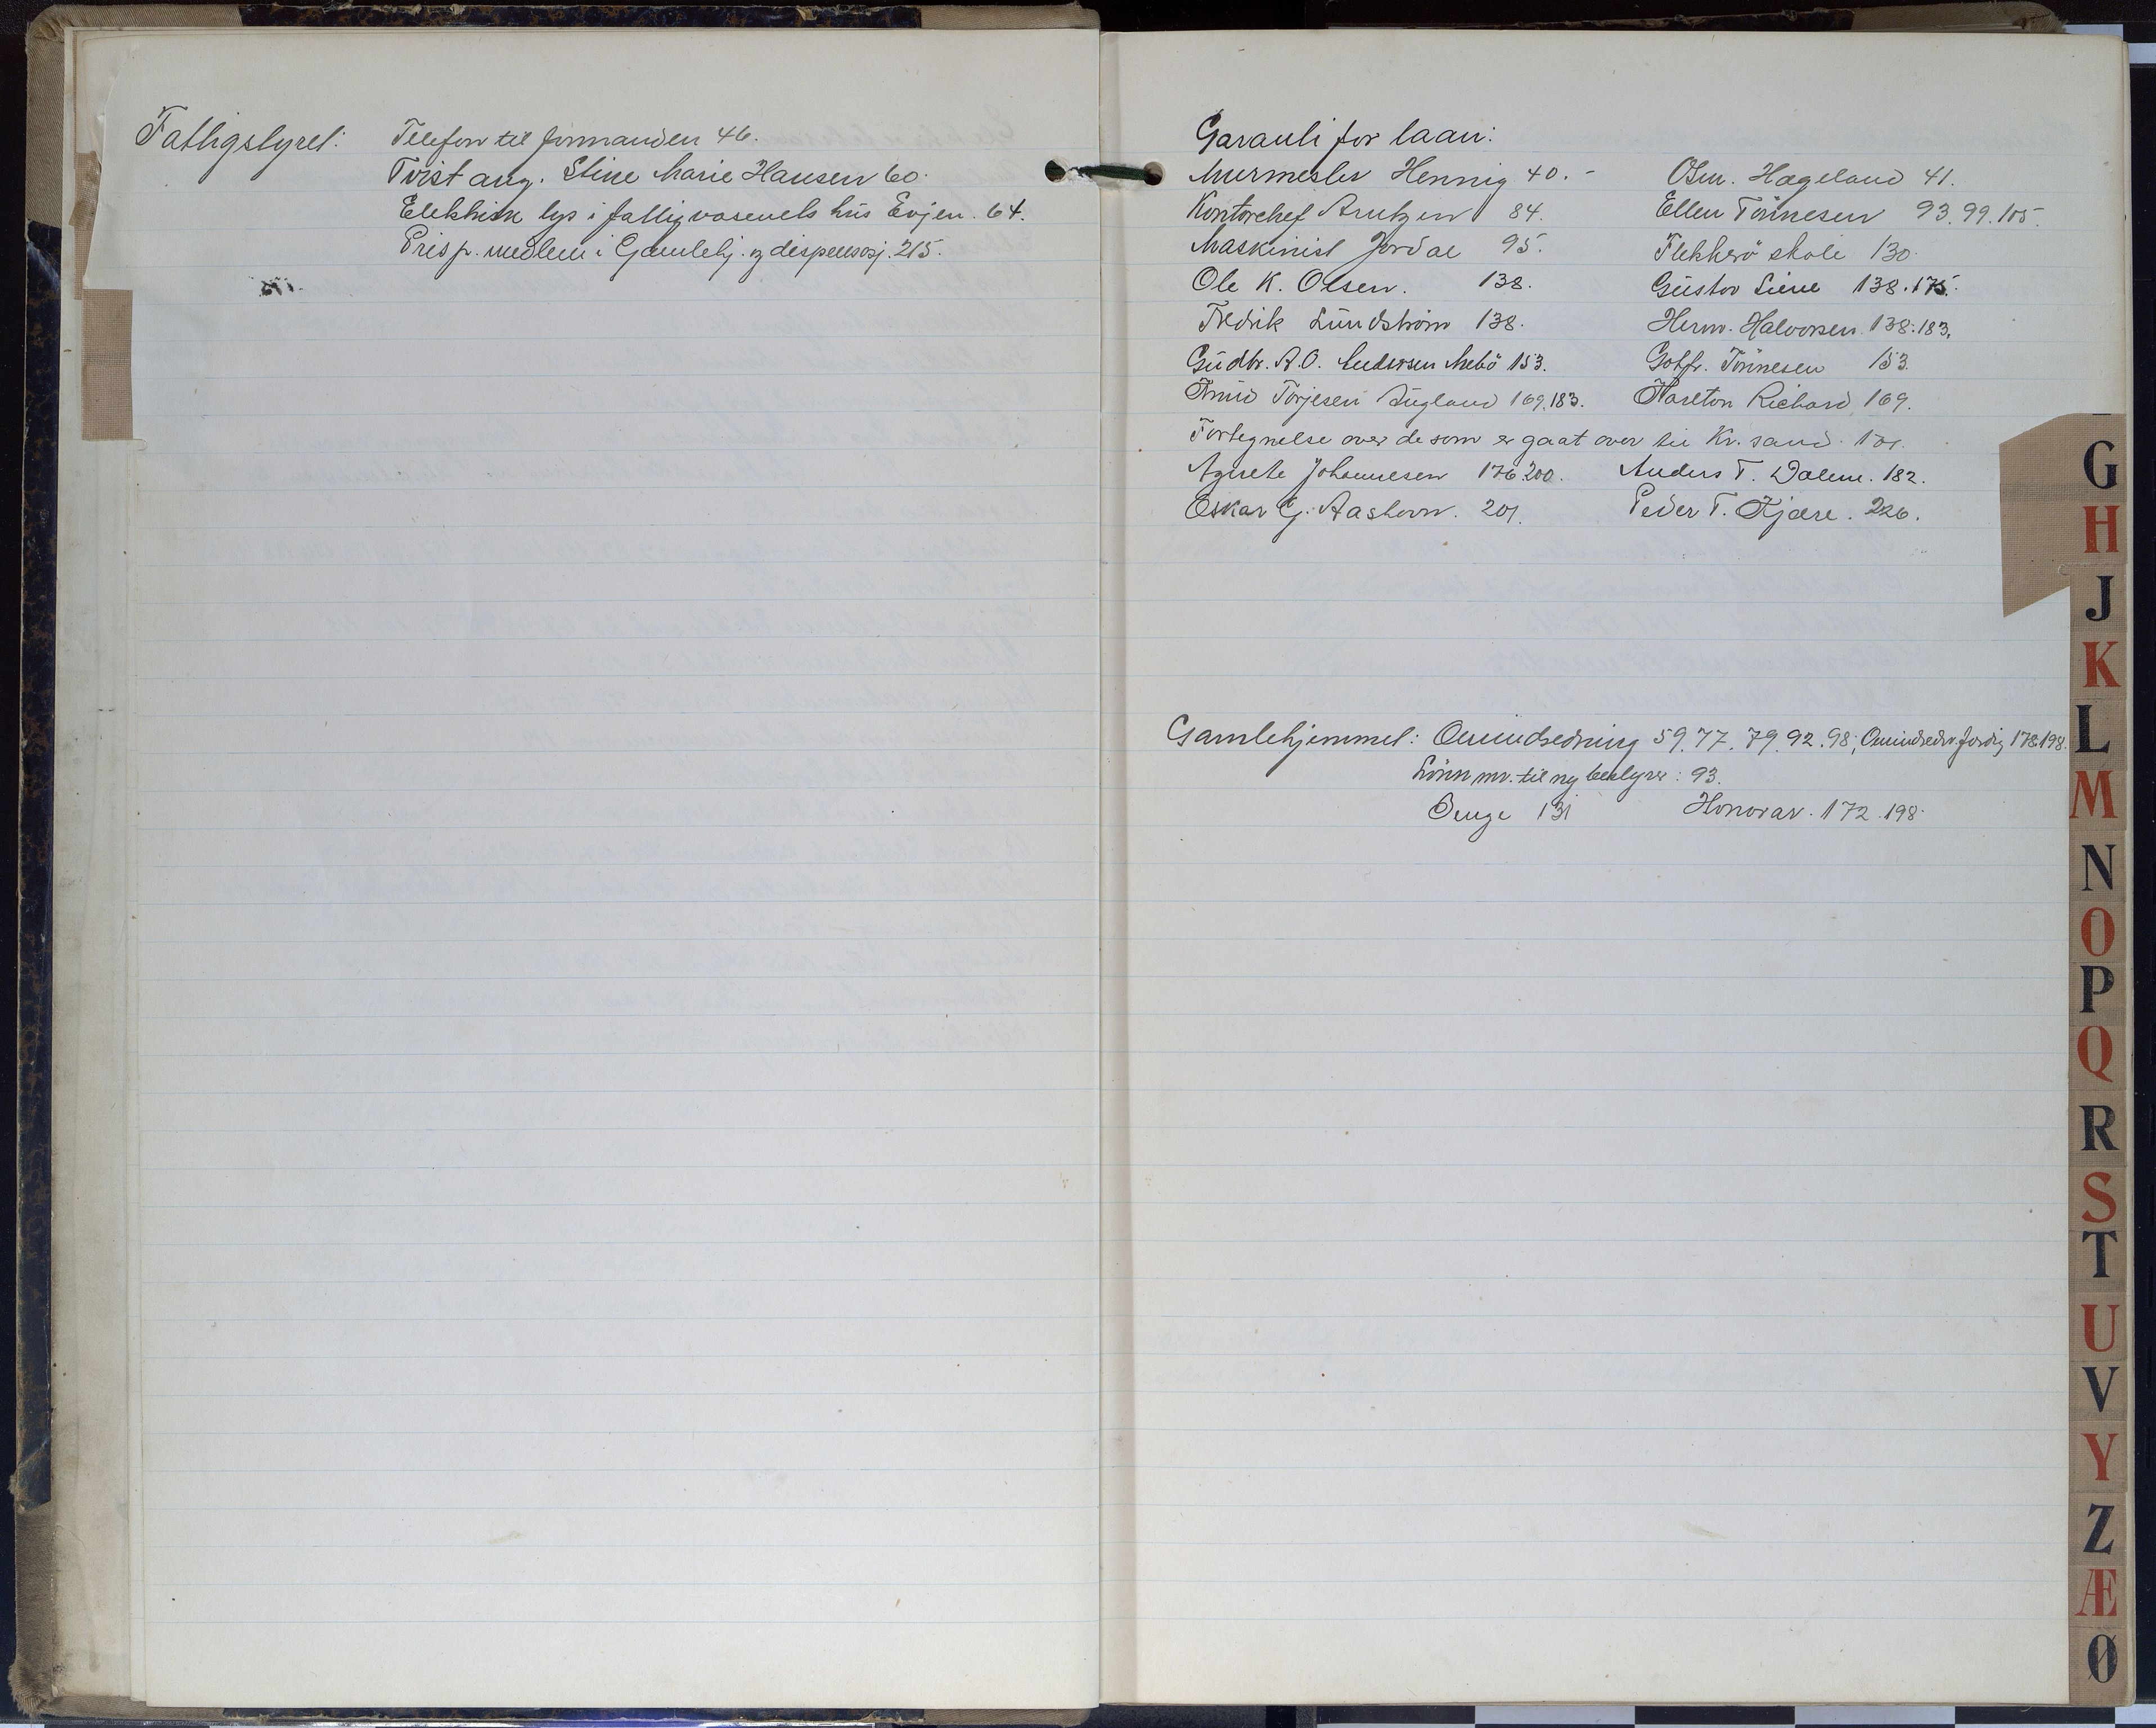 Fattigstyret: Telefon til formanden 46.
Tvist ang. Stine Marie Hansen 60.
Elektrisk lys i fattigvæsenets hus Evjen. 64.
Prisp. medlem i Gamlehj. og dispensasj. 215.
Garanti for laan:
Murmester Hennig 40.- Osm. Hageland 41.
Kontorchef Arntzen 84. Ellen Tönnesen 93. 99. 105.
Maskinist Jordal 95. Flekkerö skole 130.
Ole K. Olsen. 138. Gustav Liene 138. 175.
Fredrik Lundström 138. Herm. Halvorsen 138. 183.
Gudbr. A.O. Andersen Mebö 153. Gotfr. Tönnesen 153.
Knud Torjesen Augland 169. 183. Karlton Richard 169.
Fortegnelse over de som er gaat over til Kr. sand.
Agnete Johannesen 176 200. Anders T. Dalene. 182.
Oskar G. Aashavn. 201. Peder T. Kjære. 226.
Gamlehjemmet: Omindredning 59. 77. 79. 92. 98; Omindredn. færdig 178 198.
Lönn mv. til ny bestyrer: 93.
Senge 131 Honorar. 172. 198.
G
H
J
K
L
M
N
O
P
Q
R
S
T
U
V
Y
Z
Æ
Ø